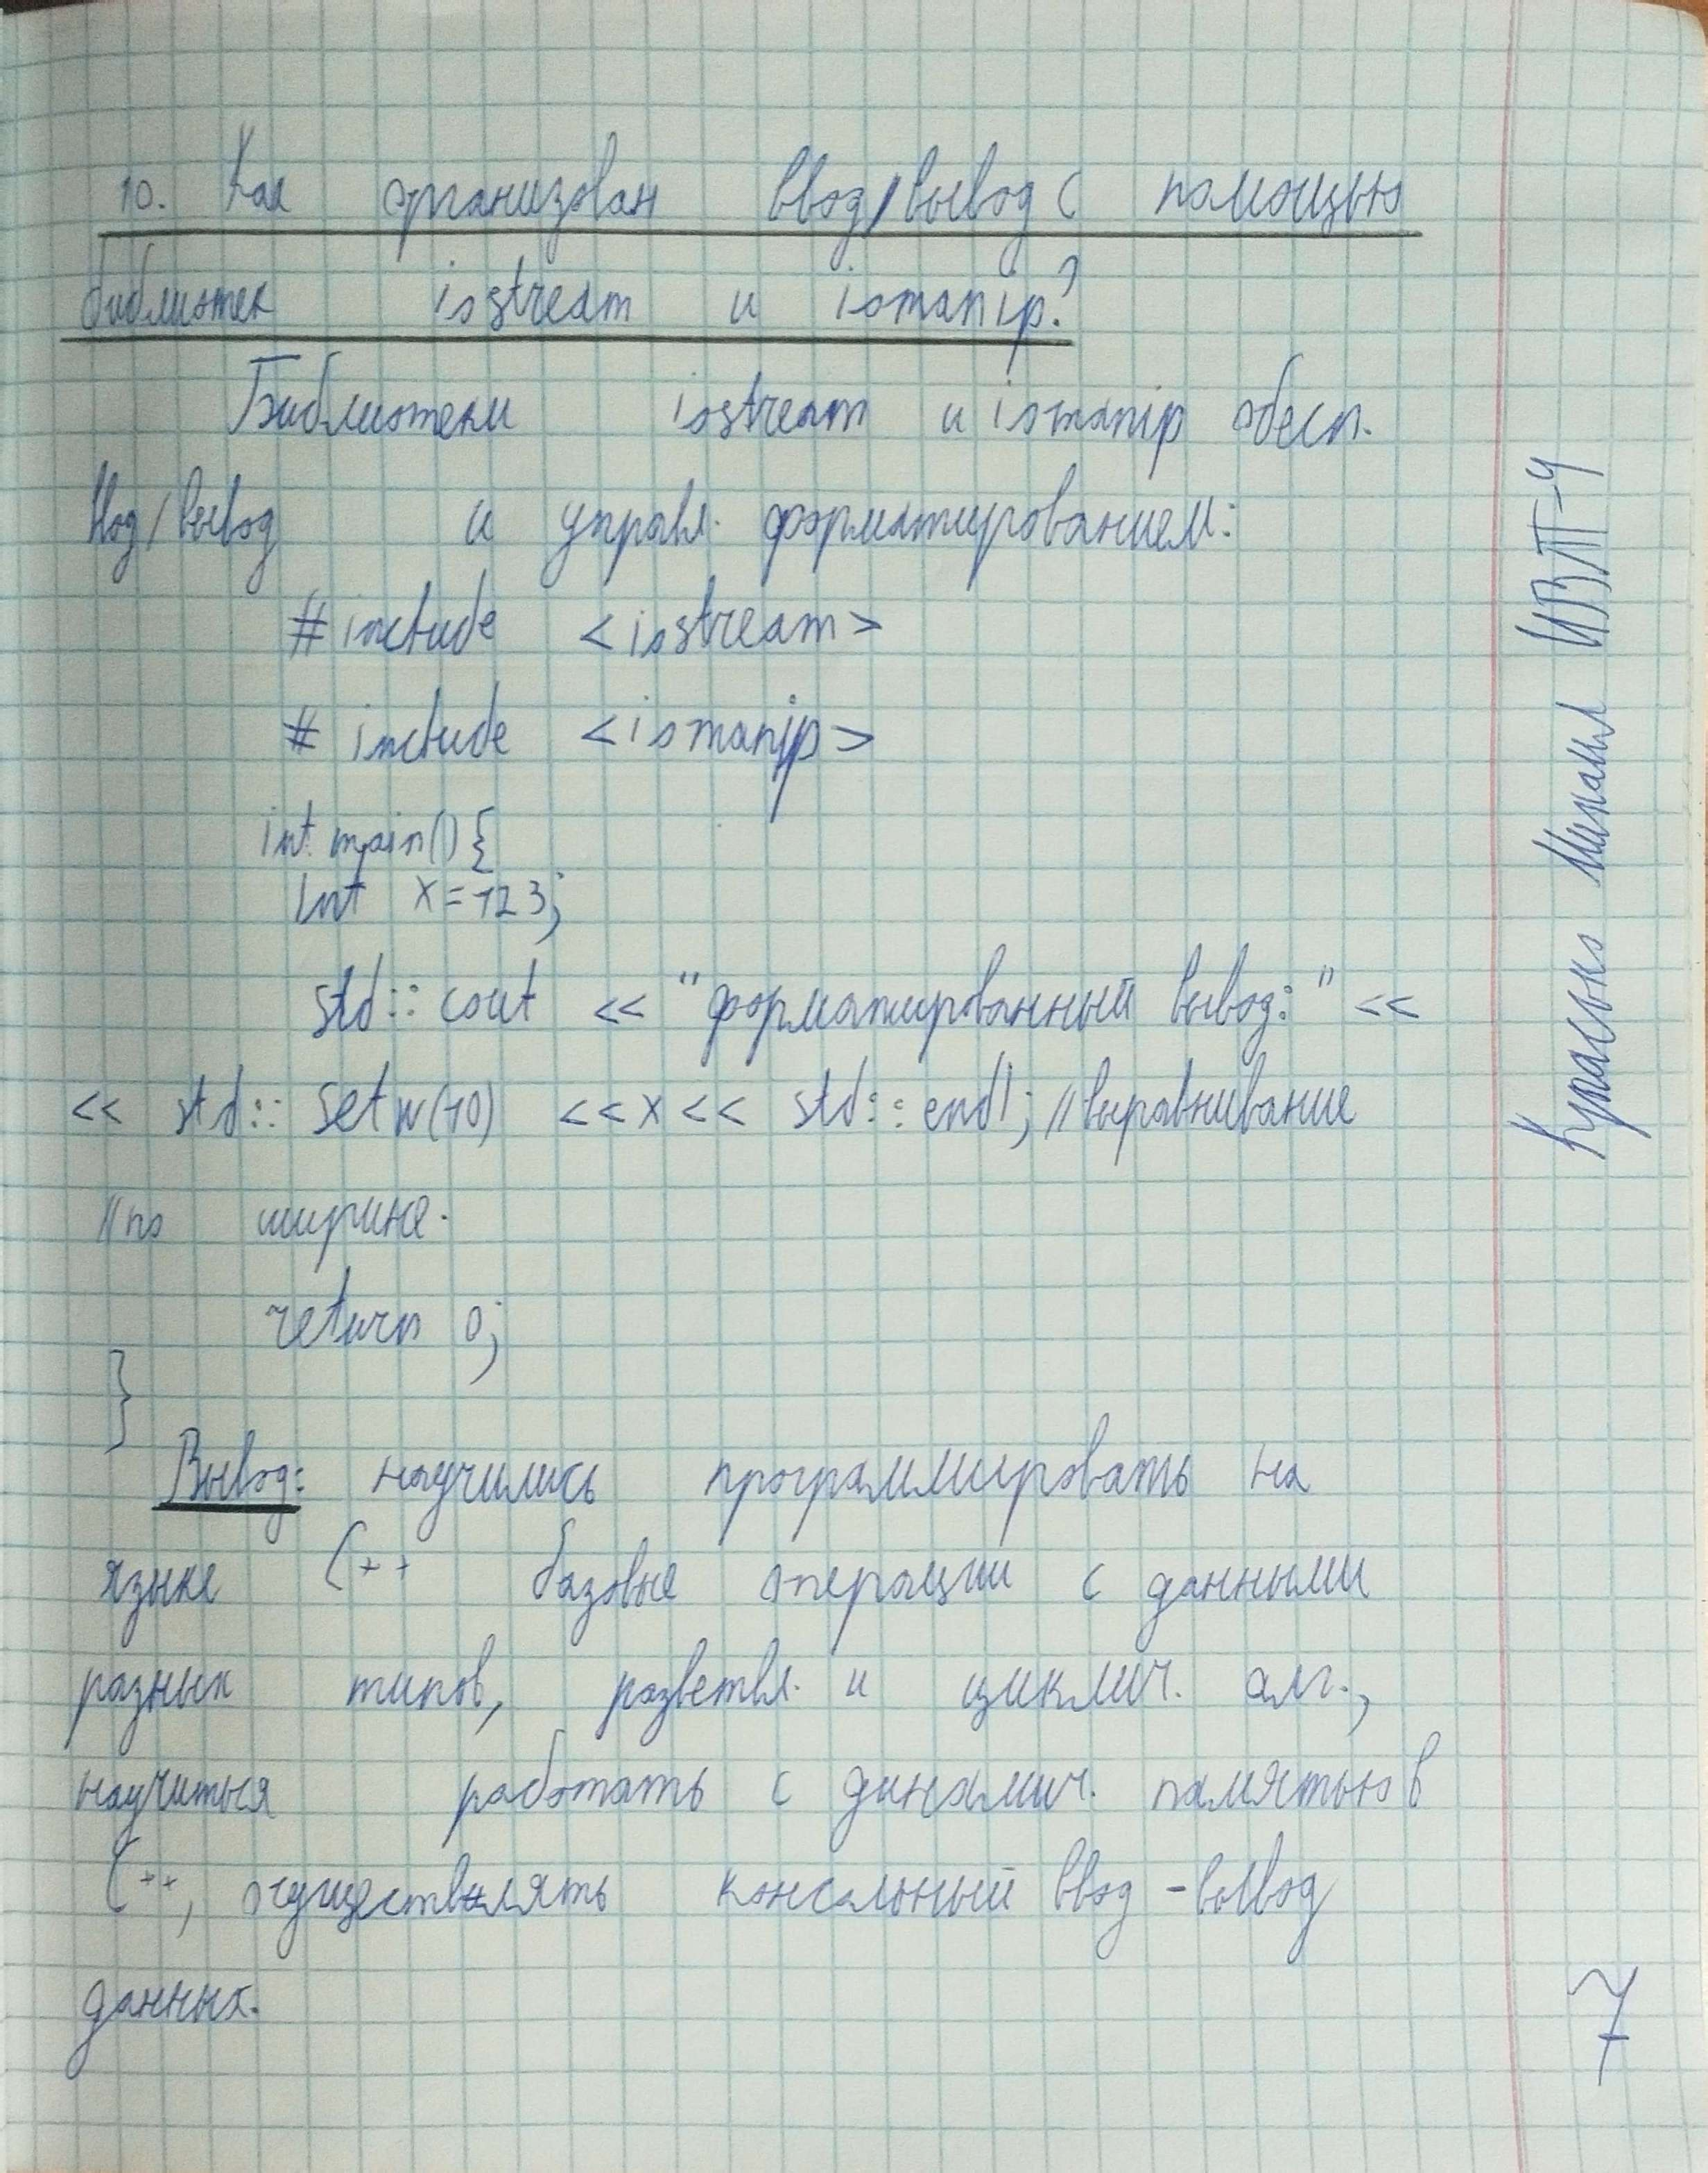 10. Как организован ввод/вывод с помощью
библиотек iostream и iomanip?
Библиотеки iostream и iomanip обесп.
ввод/вывод и управл. форматированием:
#include <iostream>
# include <iomanip>
int main() {
int x = 123;
std::cout << "форматированный вывод:" <<
<< std::setw(10) <<x<< std::endl; //выравнивание
//по ширине.
return 0;
}
Вывод: научились программировать на
языке С++ базовые операции с данными
разных типов, разветвл. и циклич. алг.,
научиться работать с динамич. памятью в
С++, осуществлять консольный ввод-вывод
данных.
Михаил ИВТ-4
7